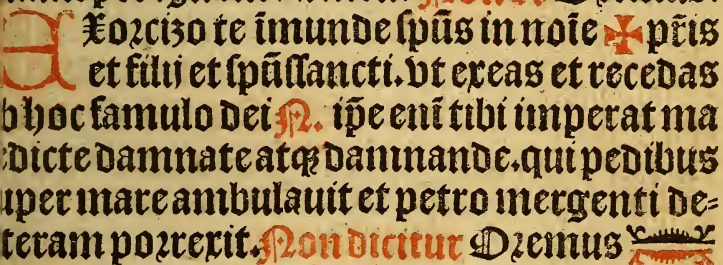 Exorcizo te īmunde spūs in noīe ✠ pr̄is
et filij et spūssancti. vt exeas et recedas
b hoc famulo dei N. ip̄e eni̅ tibi imperat ma
dicte damnate atqꝫ damnande. qui pedibus
uper mare ambulauit et petro mergenti de⸗
teram porrexit. Non dicitur Oremus